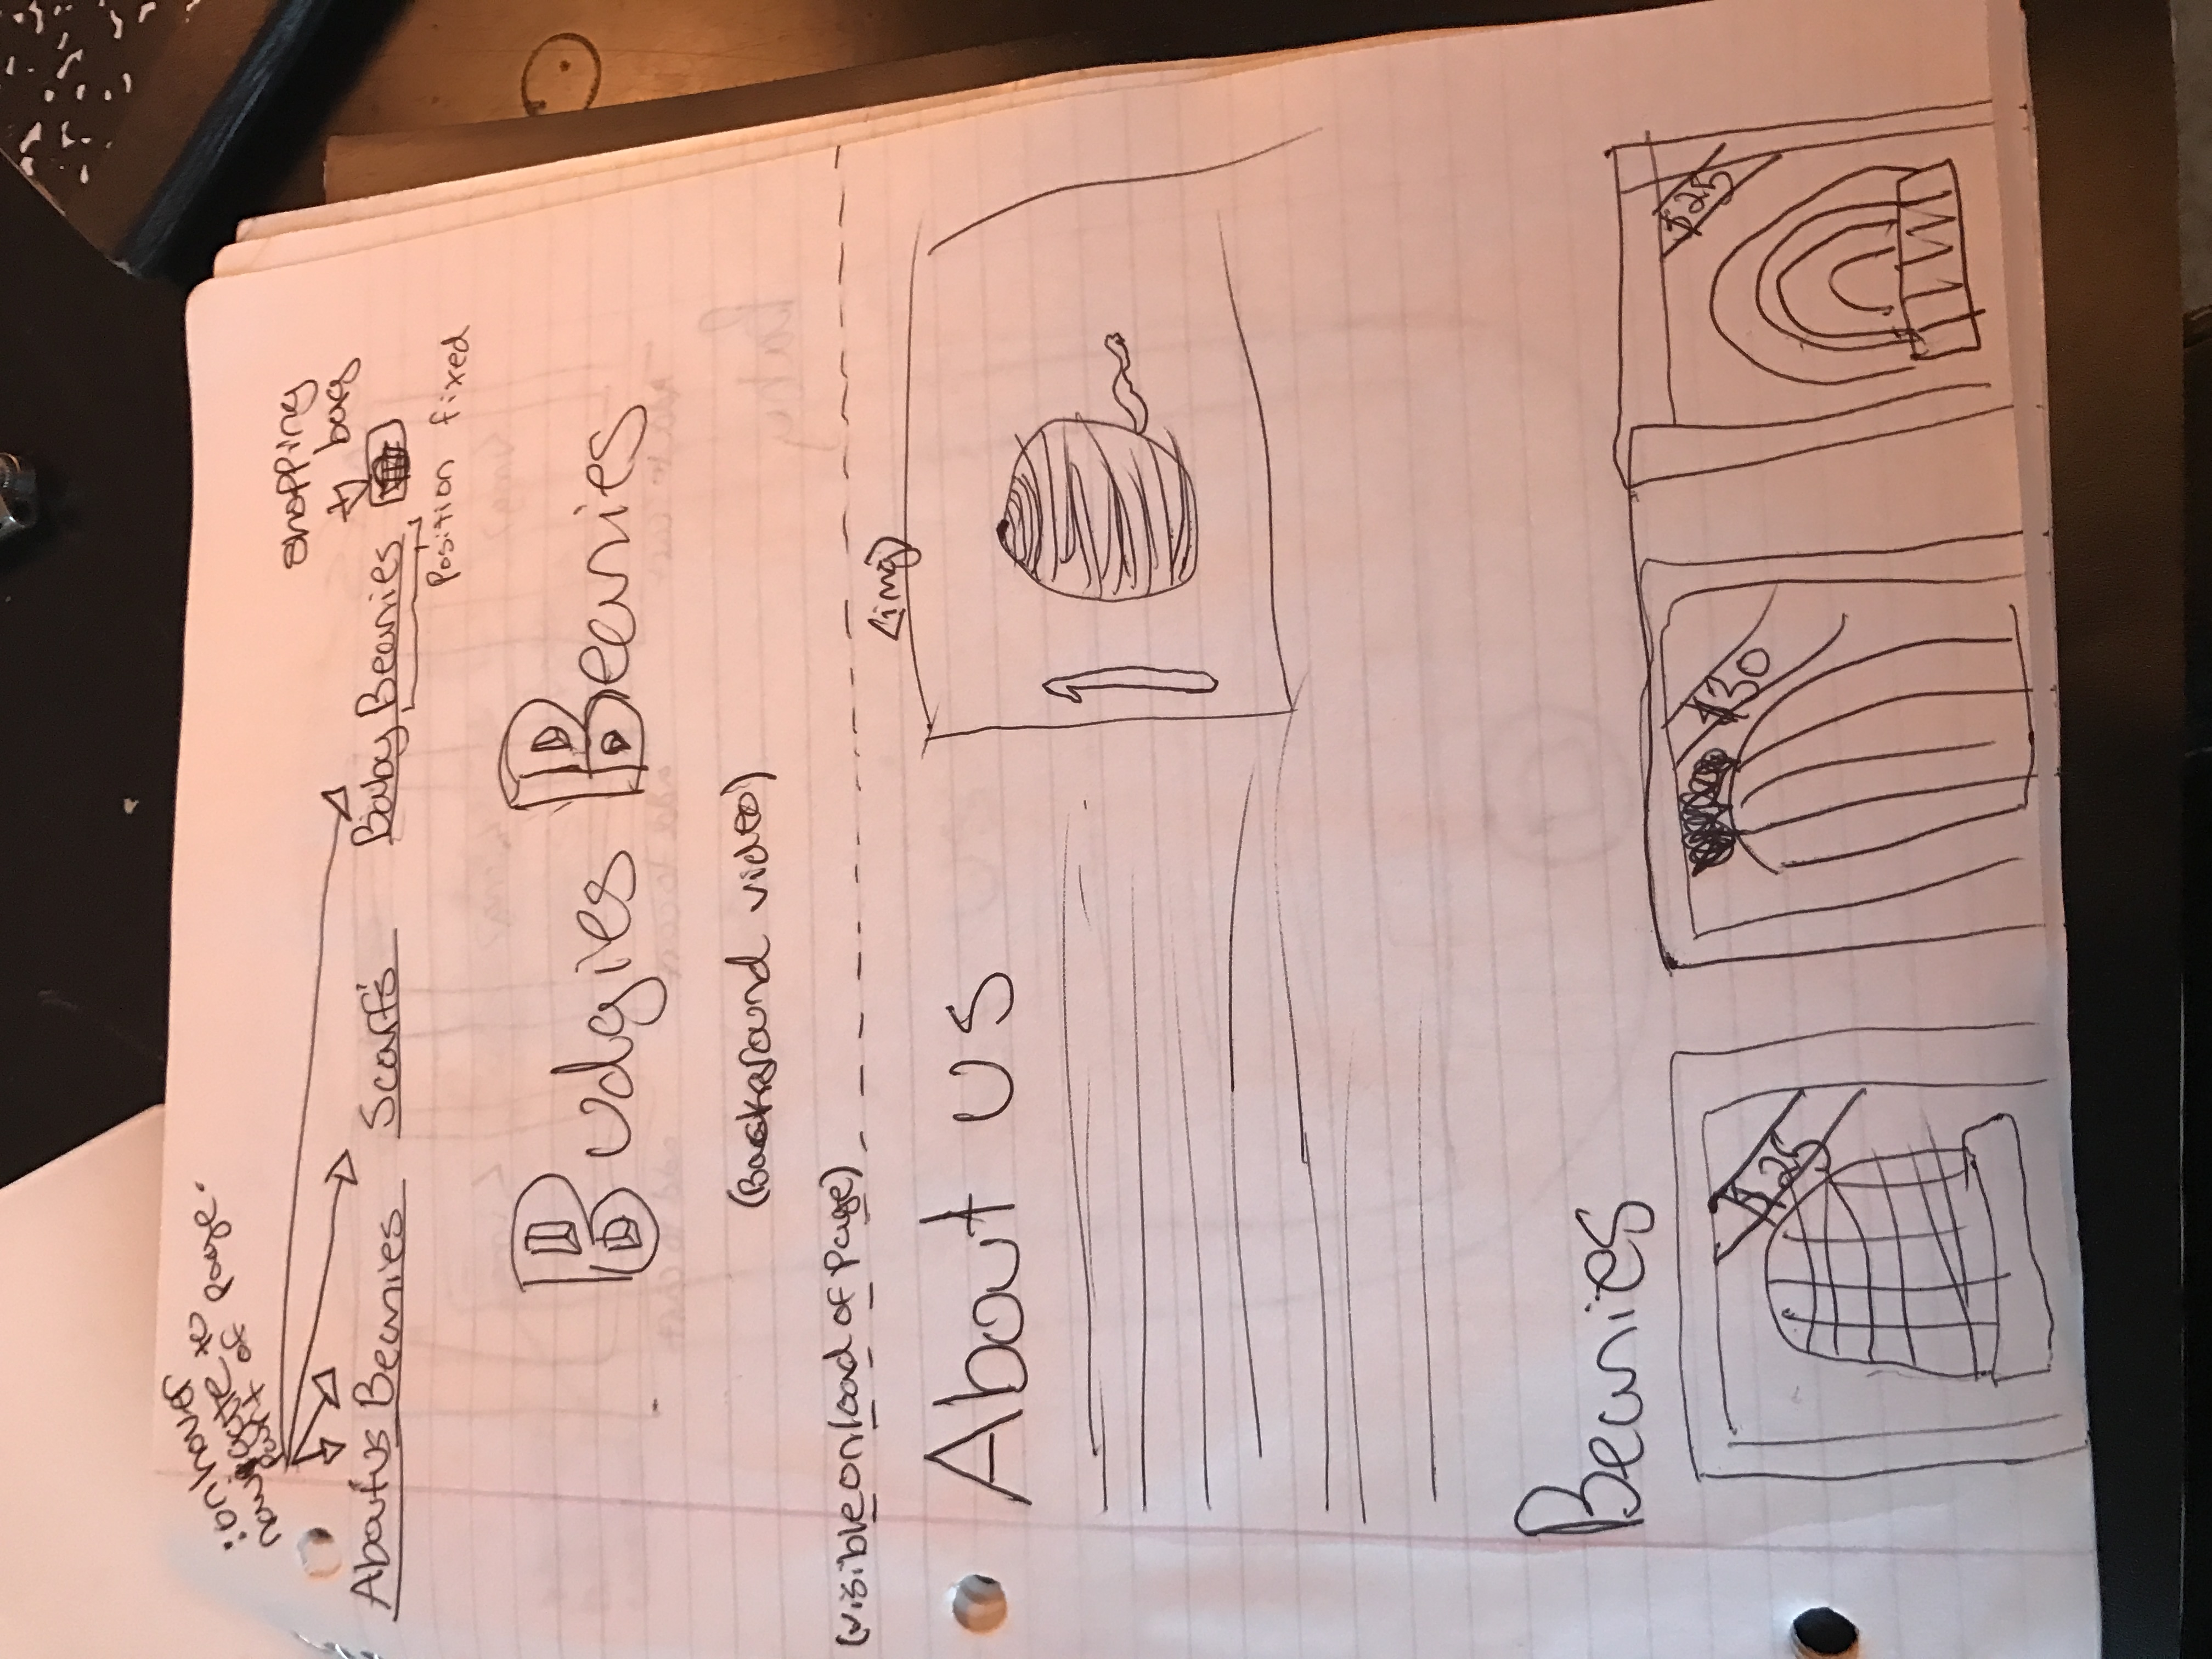 :onhover
navigate to
part of page.
shopping
bag
About us Beanies Scarfs Baby Beanies
Position fixed
Budgies Beanies
(Background video)
(visible on load of page)
<img>
About us
Beanies
$25
$30
$25